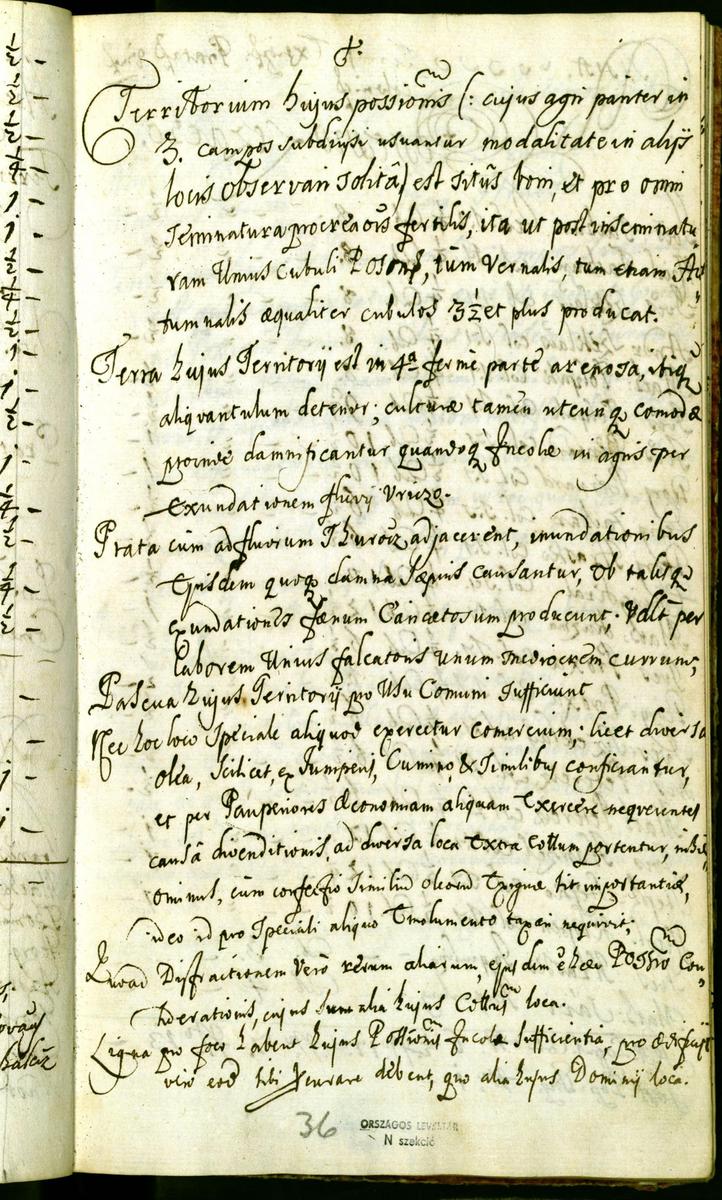 Territorium hujus possionis (: cujus agri pariter in
3. campos subdivisi usuantur modalitate in alijs
locis observari solitâ) est sitûs boni, et pro omni
seminatura procreaõis fertilis, ita ut post inseminatu
ram Unius cubuli Poson, tum Vernalis, tum etiam Au
tumnalis æqualiter cubulos 3½ et plus producat.
Terra hujus Territorij est in 4ª fermè parte arenosa, itaq
aliquantulum deterior; culturæ tamen utcunq comodæ
proinde damnificantur quandoq Incolæ in agris per
Exundationem fluvij Vriczo.
Prata cum ad fluvium Thurocz adjacerent, inundationibus
Ejusdem quoq damna Sæpius causantur, Ob talesq
exundationes fænum Caricetosum producunt; Valet per
Laborem Unius falcatoris unum mediocrem currum;
Pascua hujus Territorij pro Usu Comuni Sufficiunt
Nec hoc loco Speciale aliquod exercetur Comercium; licet diversa
olea, Scilicet, ex Junipero, Cumino, & Similibus conficiantur,
et per Pauperiores Œconomiam aliquam Exercere nequeuntes
causâ divenditionis, ad diversa loca Extra Cottum portentur, nihil
ominus, cum confectio similiũ oleorũ Exiguæ sit importantiæ,
ideo id pro Speciali aliquo Emolumento taxari nequivit;
Quoad Distractionem verò rerum aliarum, ejusdem e hæc Possio Con
siderationis, cujus sunt alia hujus Cottus loca.
Ligna pro foco habent hujus Possionis Incolæ Sufficientia, pro ædificijs
verò eod sibi procurare debent, quo alia hujus Dominij loca.
36
ORSZÁGOS LEVÉLTÁR
N szekció